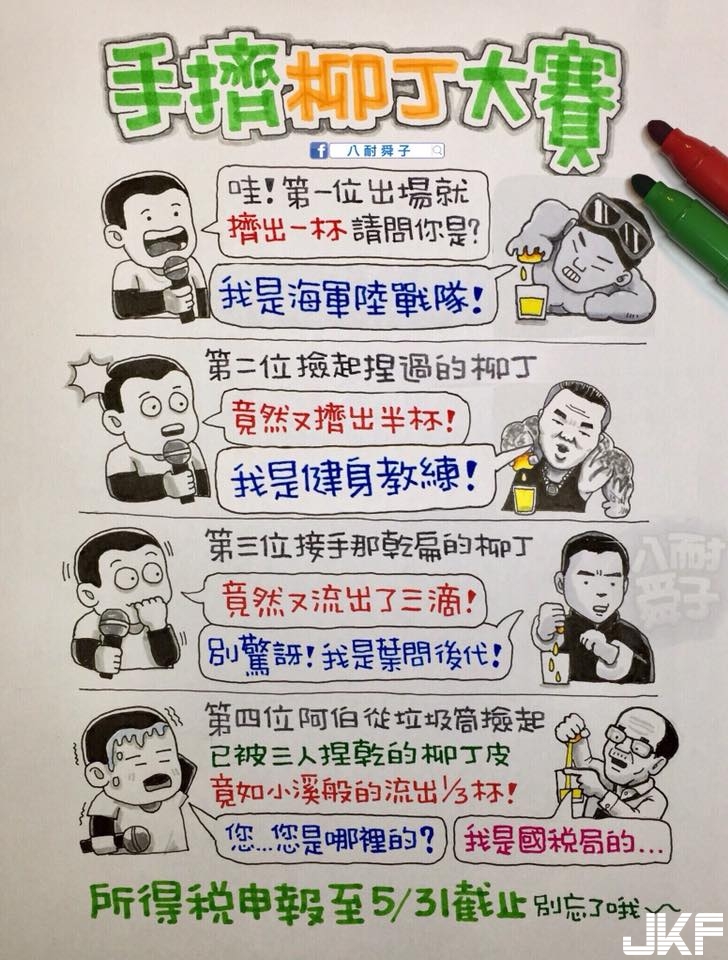 手擠柳丁大賽
八耐舜子
哇!第一位出場就
擠出一杯請問你是?
我是海軍陸戰隊!
第二位撿起捏過的柳丁
竟然又擠出半杯!
我是健身教練!
第三位接手那乾扁的柳丁
竟然又流出了三滴!
別驚訝!我是葉問後代!
八耐
舜子
第四位阿伯從垃圾筒撿起
已被三人捏乾的柳丁皮
竟如小溪般的流出1/3杯!
您...您是哪裡的?
我是國稅局的...
所得稅申報至5/31截止 別忘了哦~
JKF